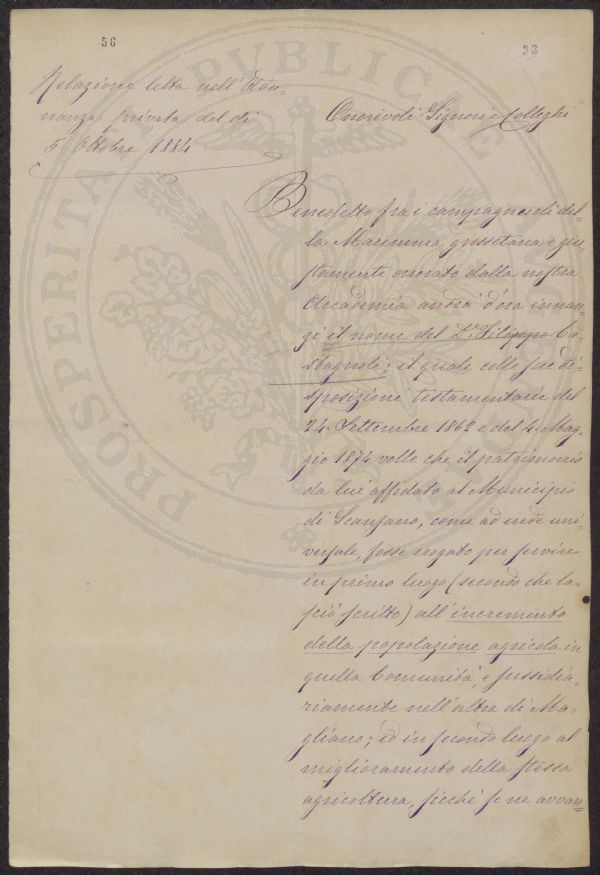 56
33
Relazione letta nell'Adu-
nanza privata del dì
5 Ottobre 1884
Onorevoli Signori e Colleghi
Benedetto fra i campagnuoli del-
la Maremma grossetana e giu-
stamente onorato dalla nostra
Accademia andrà d'ora innan-
zi il nome del Dr. Filippo Co-
stagnoli; il quale colle sue di-
sposizioni testamentarie del
24 Settembre 1862 e del 4 Mag-
gio 1874 volle che il patrimonio
da lui affidato al Municipio
di Scansano, come ad erede uni-
versale, fosse erogato per servire
in primo luogo (secondo che la-
sciò scritto) all'incremento
della popolazione agricola in
quella Comunità, e sussidia-
riamente nell'altra di Ma-
gliano; ed in secondo luogo al
miglioramento della stessa
agricoltura, sicchè se ne avvan-
PROSPERITAS PVBLICAE